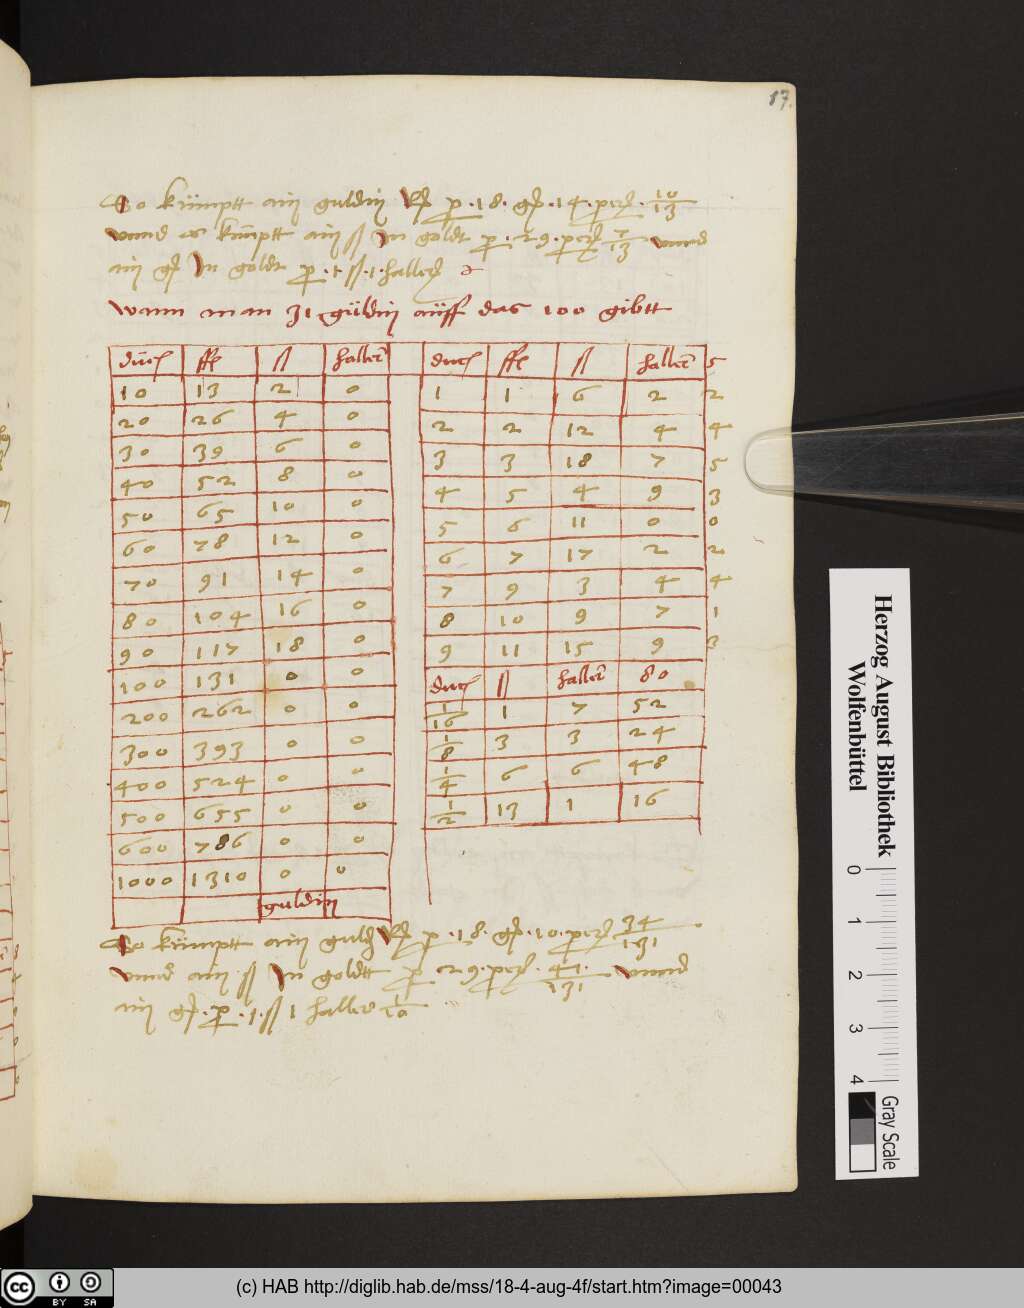 17.
So kümptt ain guldin p. 18. 14. 10/13
unnd es kumptt ain ß In goldt p. 29. 7/13 unnd
ain In goldt p. 1. ß. 1. haller
wann man 31 güldin aüff das 100 gibtt
duc ß haller
10 13 2 0
20 26 4 0
30 39 6 0
40 52 8 0
50 65 10 0
60 78 12 0
70 91 14 0
80 104 16 0
90 117 18 0
100 131 0 0
200 262 0 0
300 393 0 0
400 524 0 0
500 655 0 0
600 786 0 0
1000 1310 0 0
guldin
duc ß haller 5
1 1 6 2 2
2 2 12 4 4
3 3 18 7 5
4 5 4 9 3
5 6 11 0 0
6 7 17 2 2
7 9 3 4 4
8 10 9 7 1
9 11 15 9 3
duc ß haller 80
1/16 1 7 52
1/8 3 3 24
1/4 6 6 48
1/2 13 1 16
So kümptt ain p. 18. 10. 34/131
unnd ain ß In goldtt p 29. 41/131 unnd
ain p. 1. ß 1 haller 1/20
Herzog August Bibliothek
Wolfenbüttel
0 1 2 3 4
Gray Scale
cc BY SA
(c) HAB http://diglib.hab.de/mss/18-4-aug-4f/start.htm?image=00043